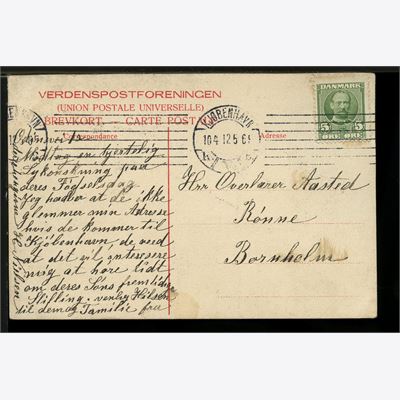 VERDENSPOSTFORENINGEN
(UNION POSTALE UNIVERSELLE)
BREVKORT. — CARTE POSTALE
Correspondance
Adresse
KJØBENHAVN
10.4.12.5-6
DANMARK
5 5
ØRE ØRE
Modtag en hjertelig
Lykønskning paa
deres Fødselsdag
Jeg haaber at de ikke
glemmer min Adresse
hvis de kommer til
Kjøbenhavn, de veed
at det vil interesere
mig at høre lidt
om deres Søns fremtidige
Stilling. venlig Hilsen
til dem og Familie fra
Hrr Overlærer Aasted
Rönne
Bornholm